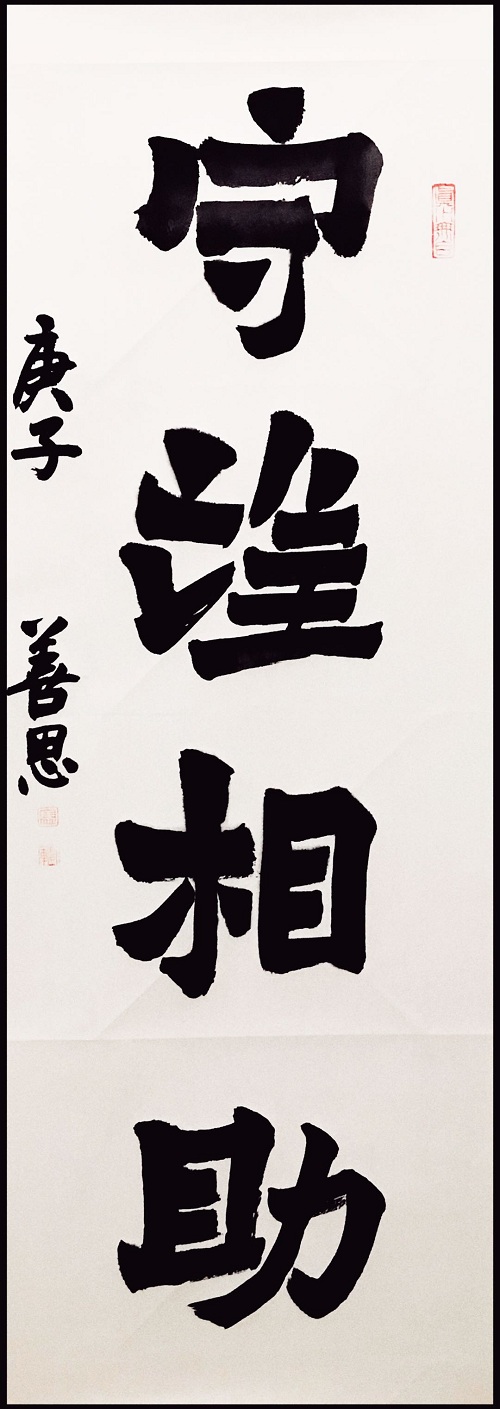 守望相助
庚子 善思